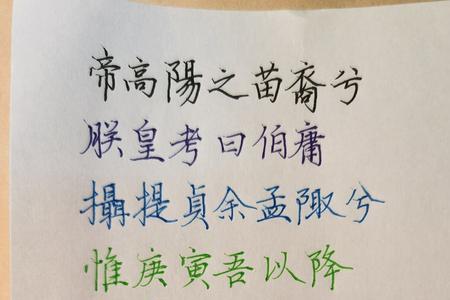 帝高陽之苗裔兮
朕皇考曰伯庸
攝提貞余孟陬兮
惟庚寅吾以降